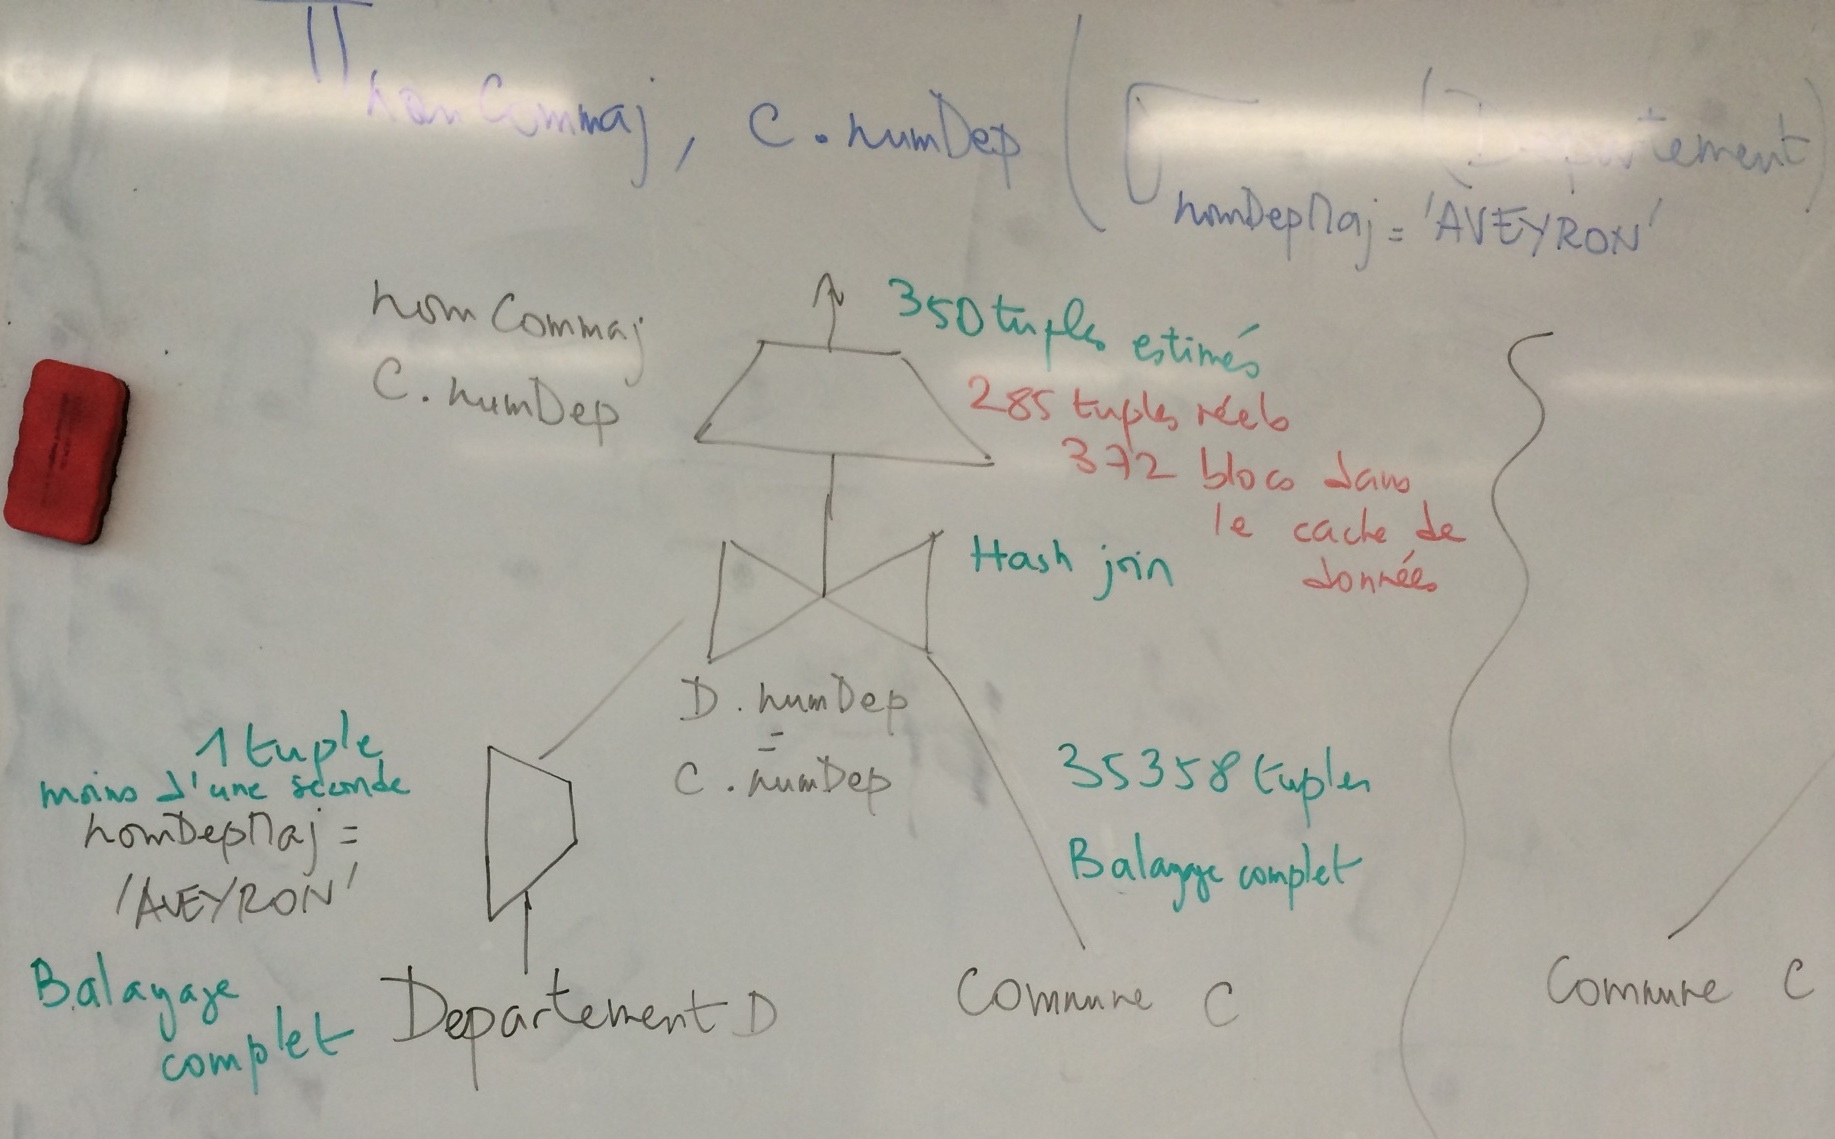 Π nomCommaj, C.numDep (σ nomDepMaj = 'AVEYRON' (Departement)
nomCommaj
C.numDep
350 tuples estimés
285 tuples réels
372 blocs dans
le cache de
données
Hash join
D.numDep
=
C.numDep
1 tuple
moins d'une seconde
nomDepMaj =
'AVEYRON'
Balayage
complet
Departement D
35358 tuples
Balayage complet
Commune C
Commune C